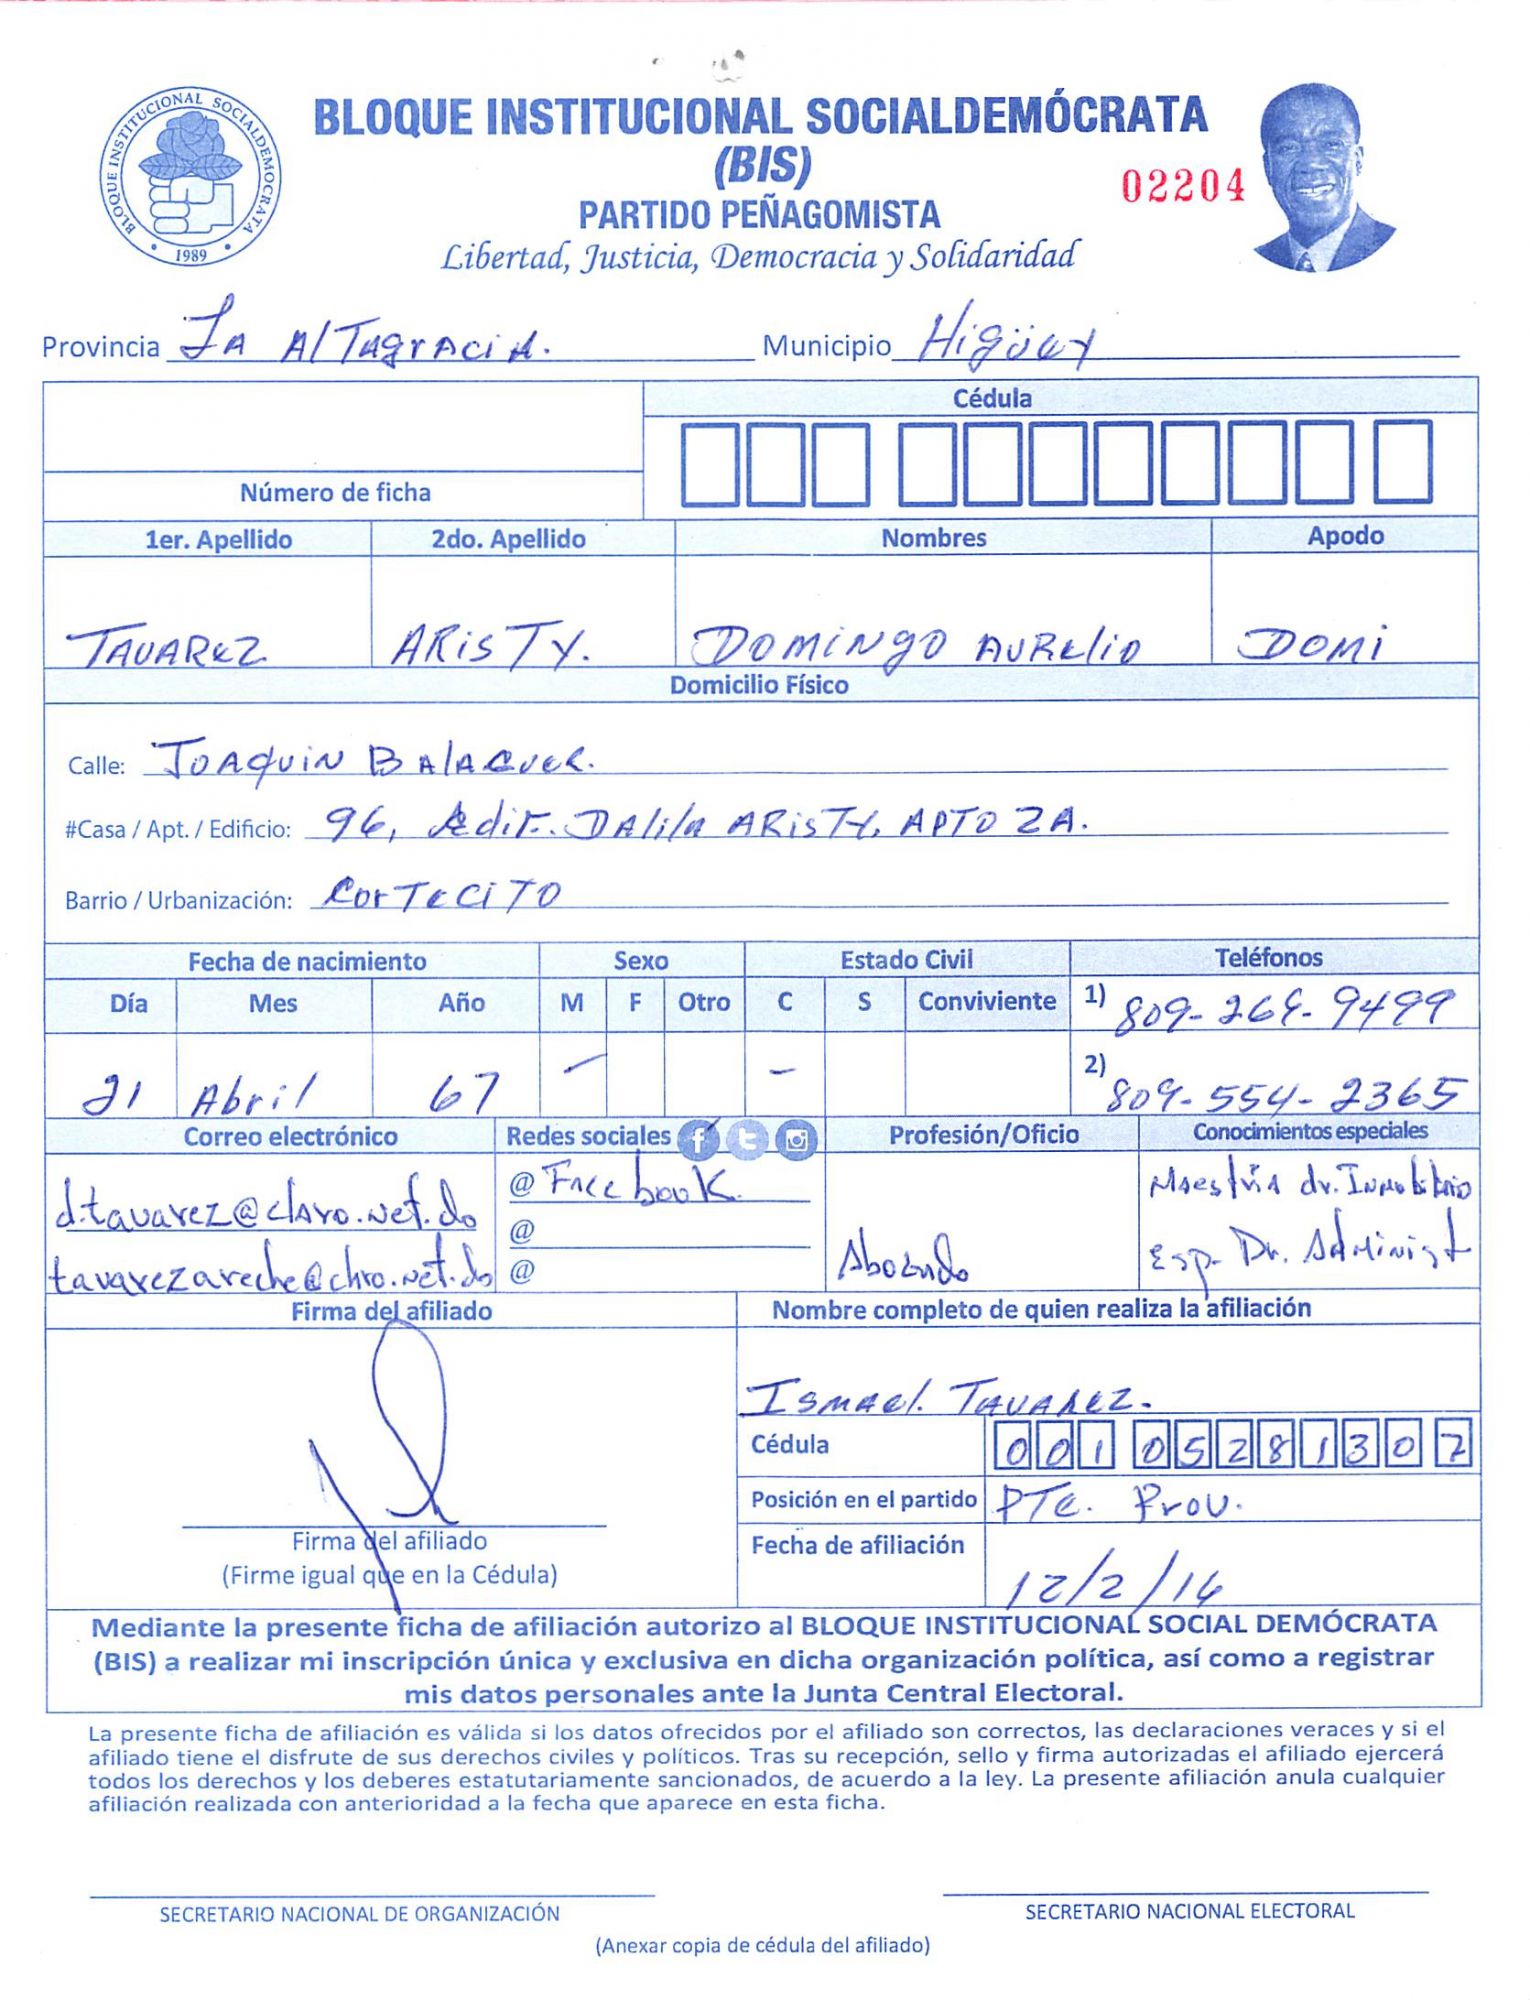 BLOQUE INSTITUCIONAL SOCIALDEMOCRATA
1989
BLOQUE INSTITUCIONAL SOCIALDEMÓCRATA
(BIS)
02204
PARTIDO PEÑAGOMISTA
Libertad, Justicia, Democracia y Solidaridad
Provincia La Altagracia. Municipio Higüey
Cédula
Número de ficha
1er. Apellido 2do. Apellido Nombres Apodo
TAVAREZ ARISTY. DOMINGO AURELIO DOMI
Domicilio Físico
Calle: JOAQUIN BALAGUER.
#Casa / Apt. / Edificio: 96, Edif. DALILA ARISTY, APTO 2A.
Barrio / Urbanización: CORTECITO
Fecha de nacimiento Sexo Estado Civil Teléfonos
Día Mes Año M F Otro C S Conviviente 1) 809-269-9499
21 Abril 67 – – 2) 809-554-2365
Correo electrónico Redes sociales Profesión/Oficio Conocimientos especiales
d.tavarez@claro.net.do @ Facebook. Abogado Maestria dr. Inmobiliario
@ Esp. Dr. Administ
tavarezareche@claro.net.do @
Firma del afiliado Nombre completo de quien realiza la afiliación
ISMAEL TAVAREZ.
Cédula 001 0528130 7
Posición en el partido PTE. Prov.
Firma del afiliado Fecha de afiliación
(Firme igual que en la Cédula) 12/2/16
Mediante la presente ficha de afiliación autorizo al BLOQUE INSTITUCIONAL SOCIAL DEMÓCRATA
(BIS) a realizar mi inscripción única y exclusiva en dicha organización política, así como a registrar
mis datos personales ante la Junta Central Electoral.
La presente ficha de afiliación es válida si los datos ofrecidos por el afiliado son correctos, las declaraciones veraces y si el
afiliado tiene el disfrute de sus derechos civiles y políticos. Tras su recepción, sello y firma autorizadas el afiliado ejercerá
todos los derechos y los deberes estatutariamente sancionados, de acuerdo a la ley. La presente afiliación anula cualquier
afiliación realizada con anterioridad a la fecha que aparece en esta ficha.
SECRETARIO NACIONAL DE ORGANIZACIÓN SECRETARIO NACIONAL ELECTORAL
(Anexar copia de cédula del afiliado)